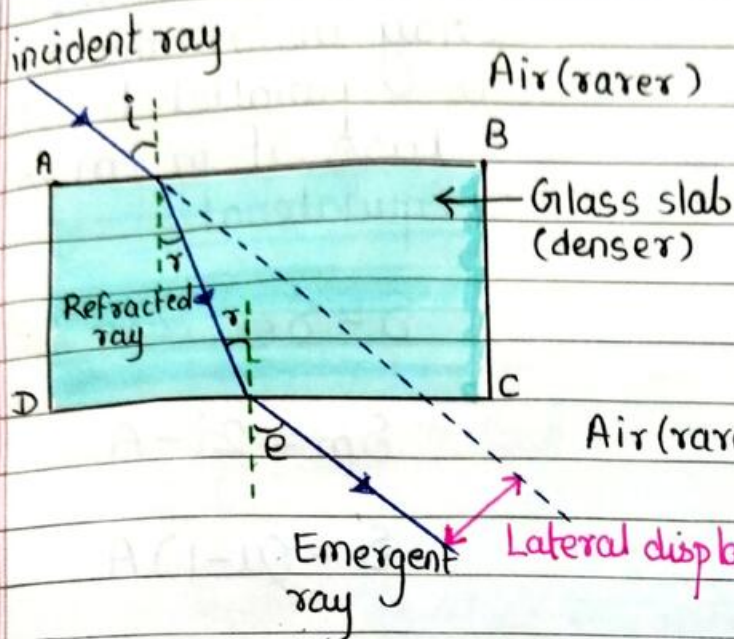 incident ray
Air (rarer)
i
A
B
Glass slab
(denser)
r
Refracted
ray
r
D
C
e
Air (rar
Emergent
ray
Lateral displ